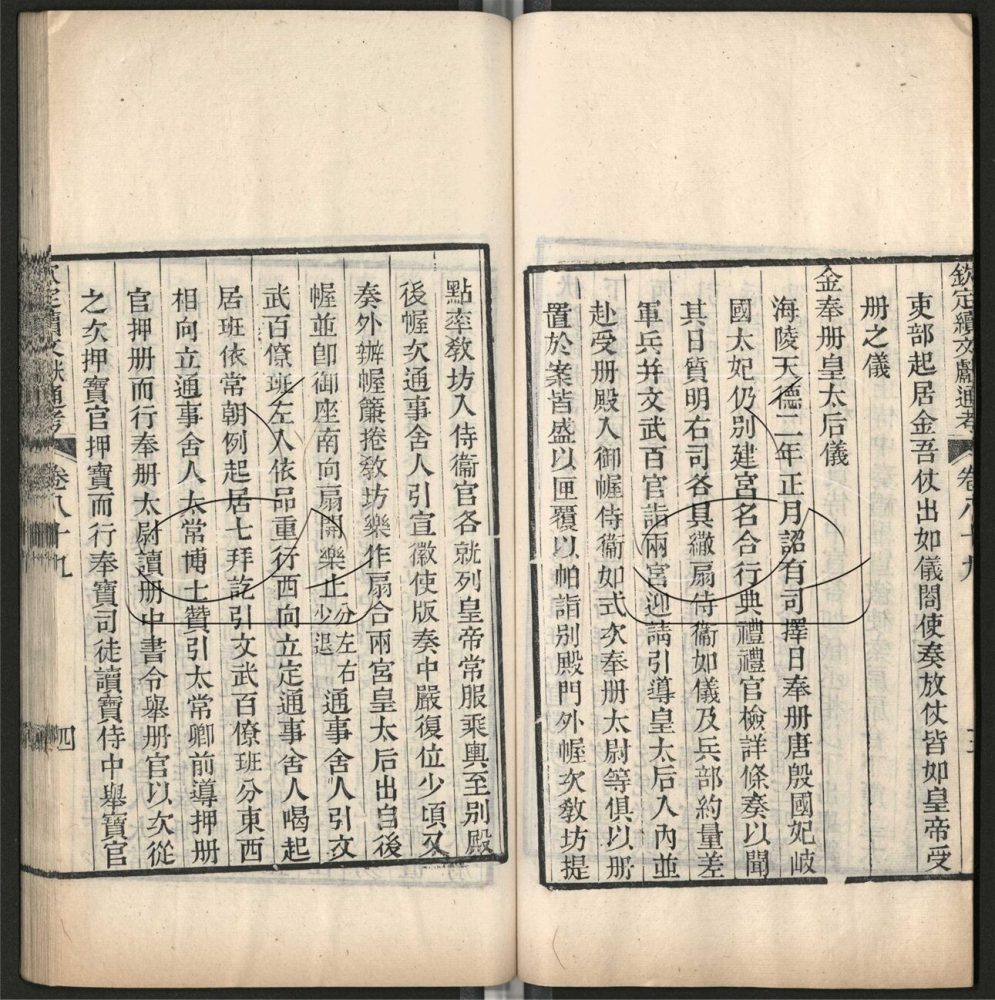 欽定續文獻通考 卷八十九
吏部起居金吾仗出如儀閤使奏放仗皆如皇帝受
册之儀
金奉册皇太后儀
海陵天德二年正月詔有司擇日奉册唐殷國妃岐
國太妃仍别建宮名合行典禮禮官檢詳條奏以聞
其日質明右司各具繖扇侍衞如儀及兵部約量差
軍兵并文武百官詣兩宮迎請引導皇太后入內並
赴受册殿入御幄侍衞如式次奉册太尉等俱以册
置於案皆盛以匣覆以帕詣别殿門外幄次敎坊提
點率敎坊入侍衞官各就列皇帝常服乘輿至别殿
後幄次通事舍人引宣徽使版奏中嚴復位少頃又
奏外辦幄簾捲敎坊樂作扇合兩宮皇太后出自後
幄並卽御座南向扇開樂止分左右少退通事舍人引文
武百僚班左入依品重行西向立定通事舍人喝起
居班依常朝例起居七拜訖引文武百僚班分東西
相向立通事舍人太常博士贊引太常卿前導押册
官押册而行奉册太尉讀册中書令舉册官以次從
之次押寶官押寶而行奉寶司徒讀寶侍中舉寶官
欽定續文獻通考 卷八十九 四